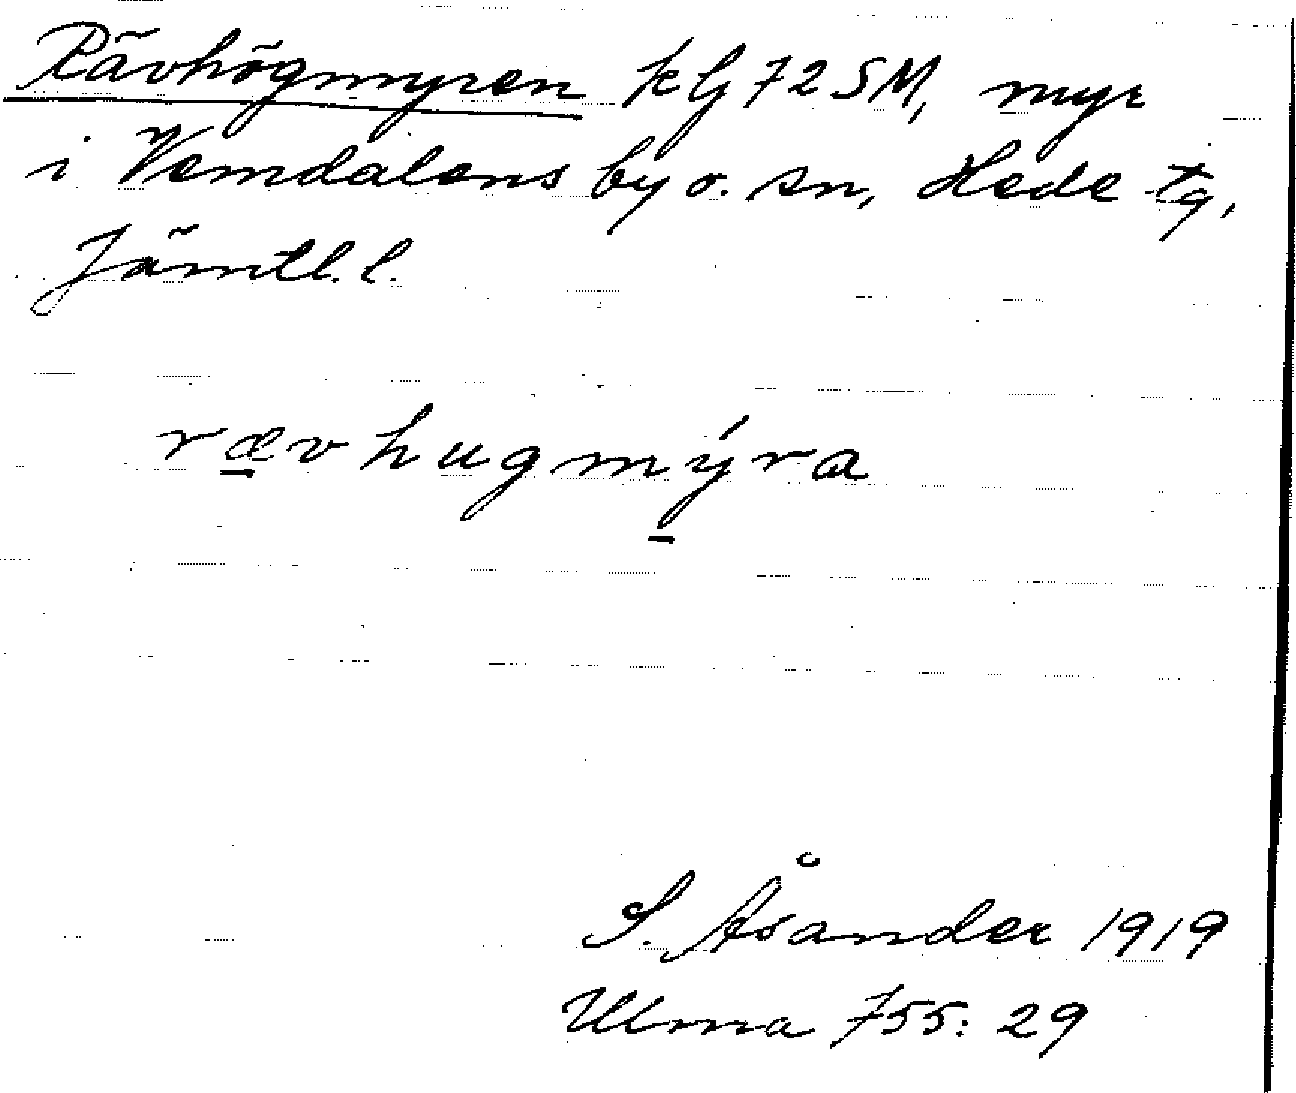 Rävhögmyren k lj 72 SM, myr
i Vemdalens by o. sn, Hede tg,
Jämtl. l.
rævhugmýra
S. Åsander 1919
Ulma 755:29